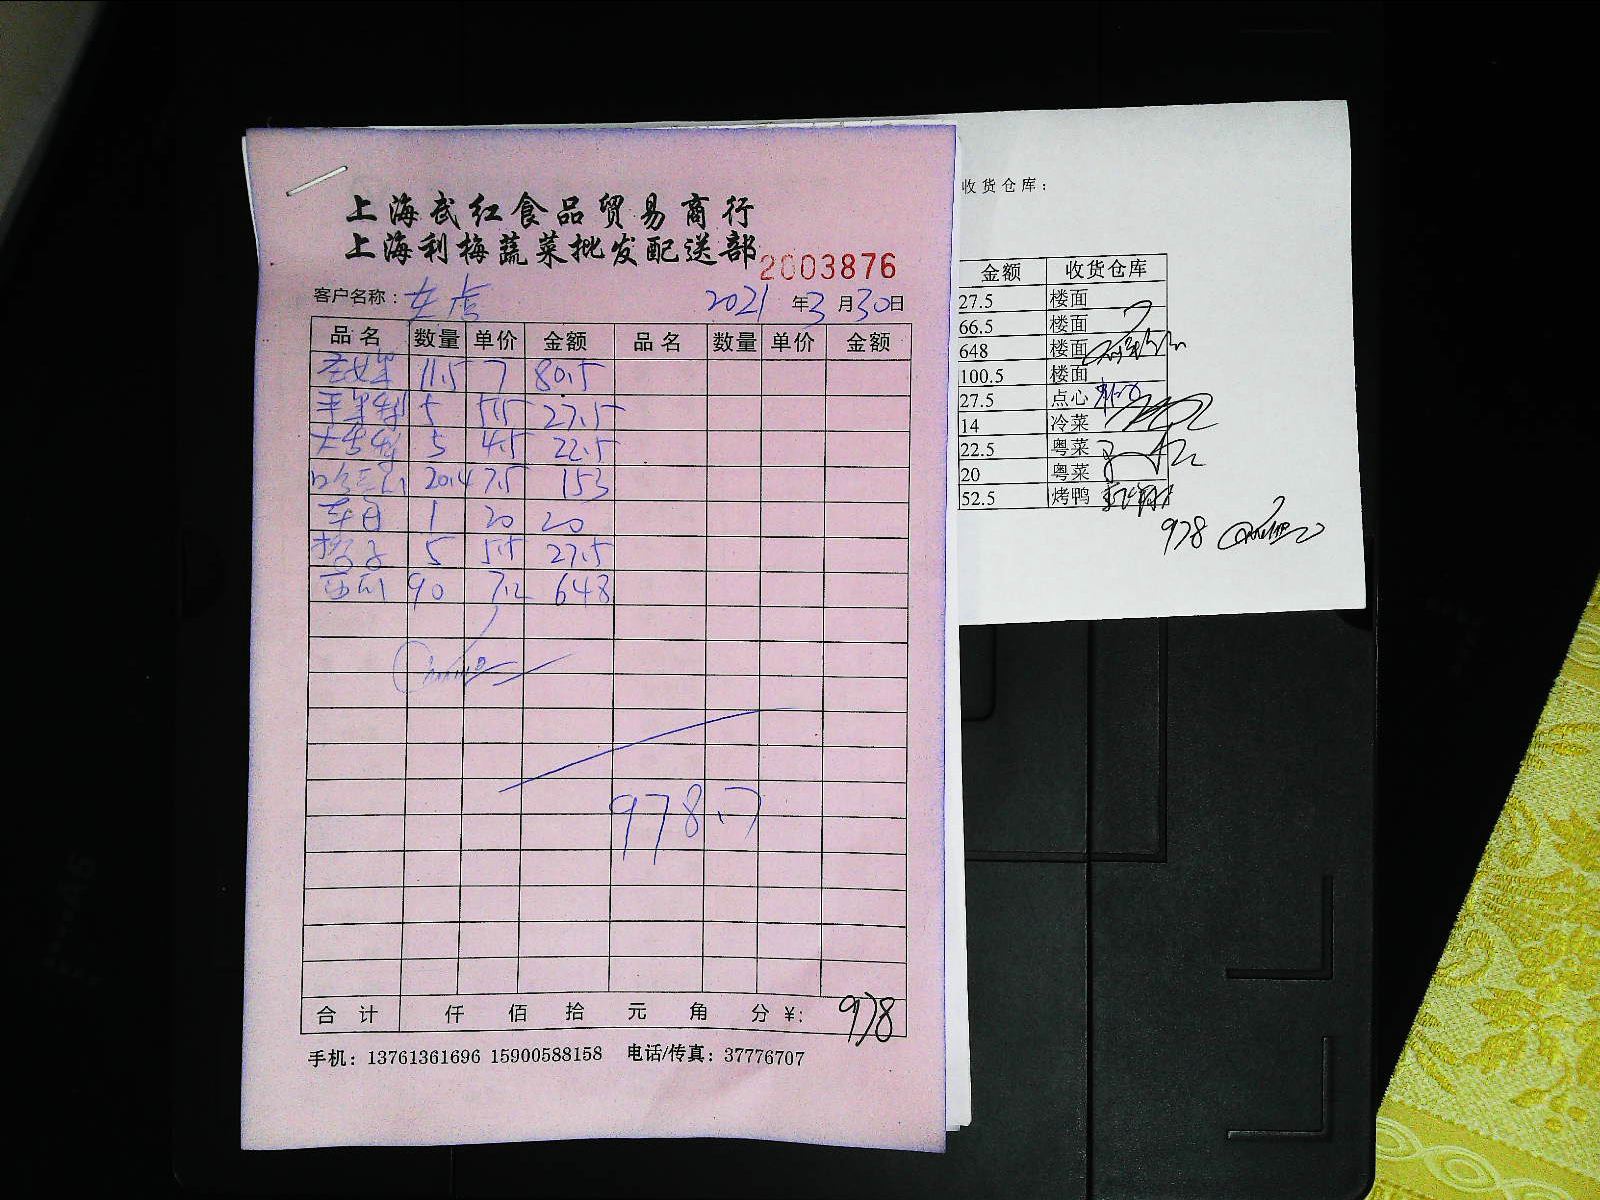 上海武红食品贸易商行
上海利梅蔬菜批发配送部
2003876
客户名称：
2021 年 3 月 30 日
品名 数量 单价 金额 品名 数量 单价 金额
11.5 7 80.5
5 5.5 27.5
5 4.5 22.5
哈密瓜 20.4 7.5 153
1 20 20
橙子 5 5.5 27.5
西瓜 90 7.2 648
978.7
合计 仟 佰 拾 元 角 分 ¥: 978
手机：13761361696 15900588158 电话/传真：37776707
收货仓库：
金额 收货仓库
27.5 楼面
66.5 楼面
648 楼面
100.5 楼面
27.5 点心
14 冷菜
22.5 粤菜
20 粤菜
52.5 烤鸭
978